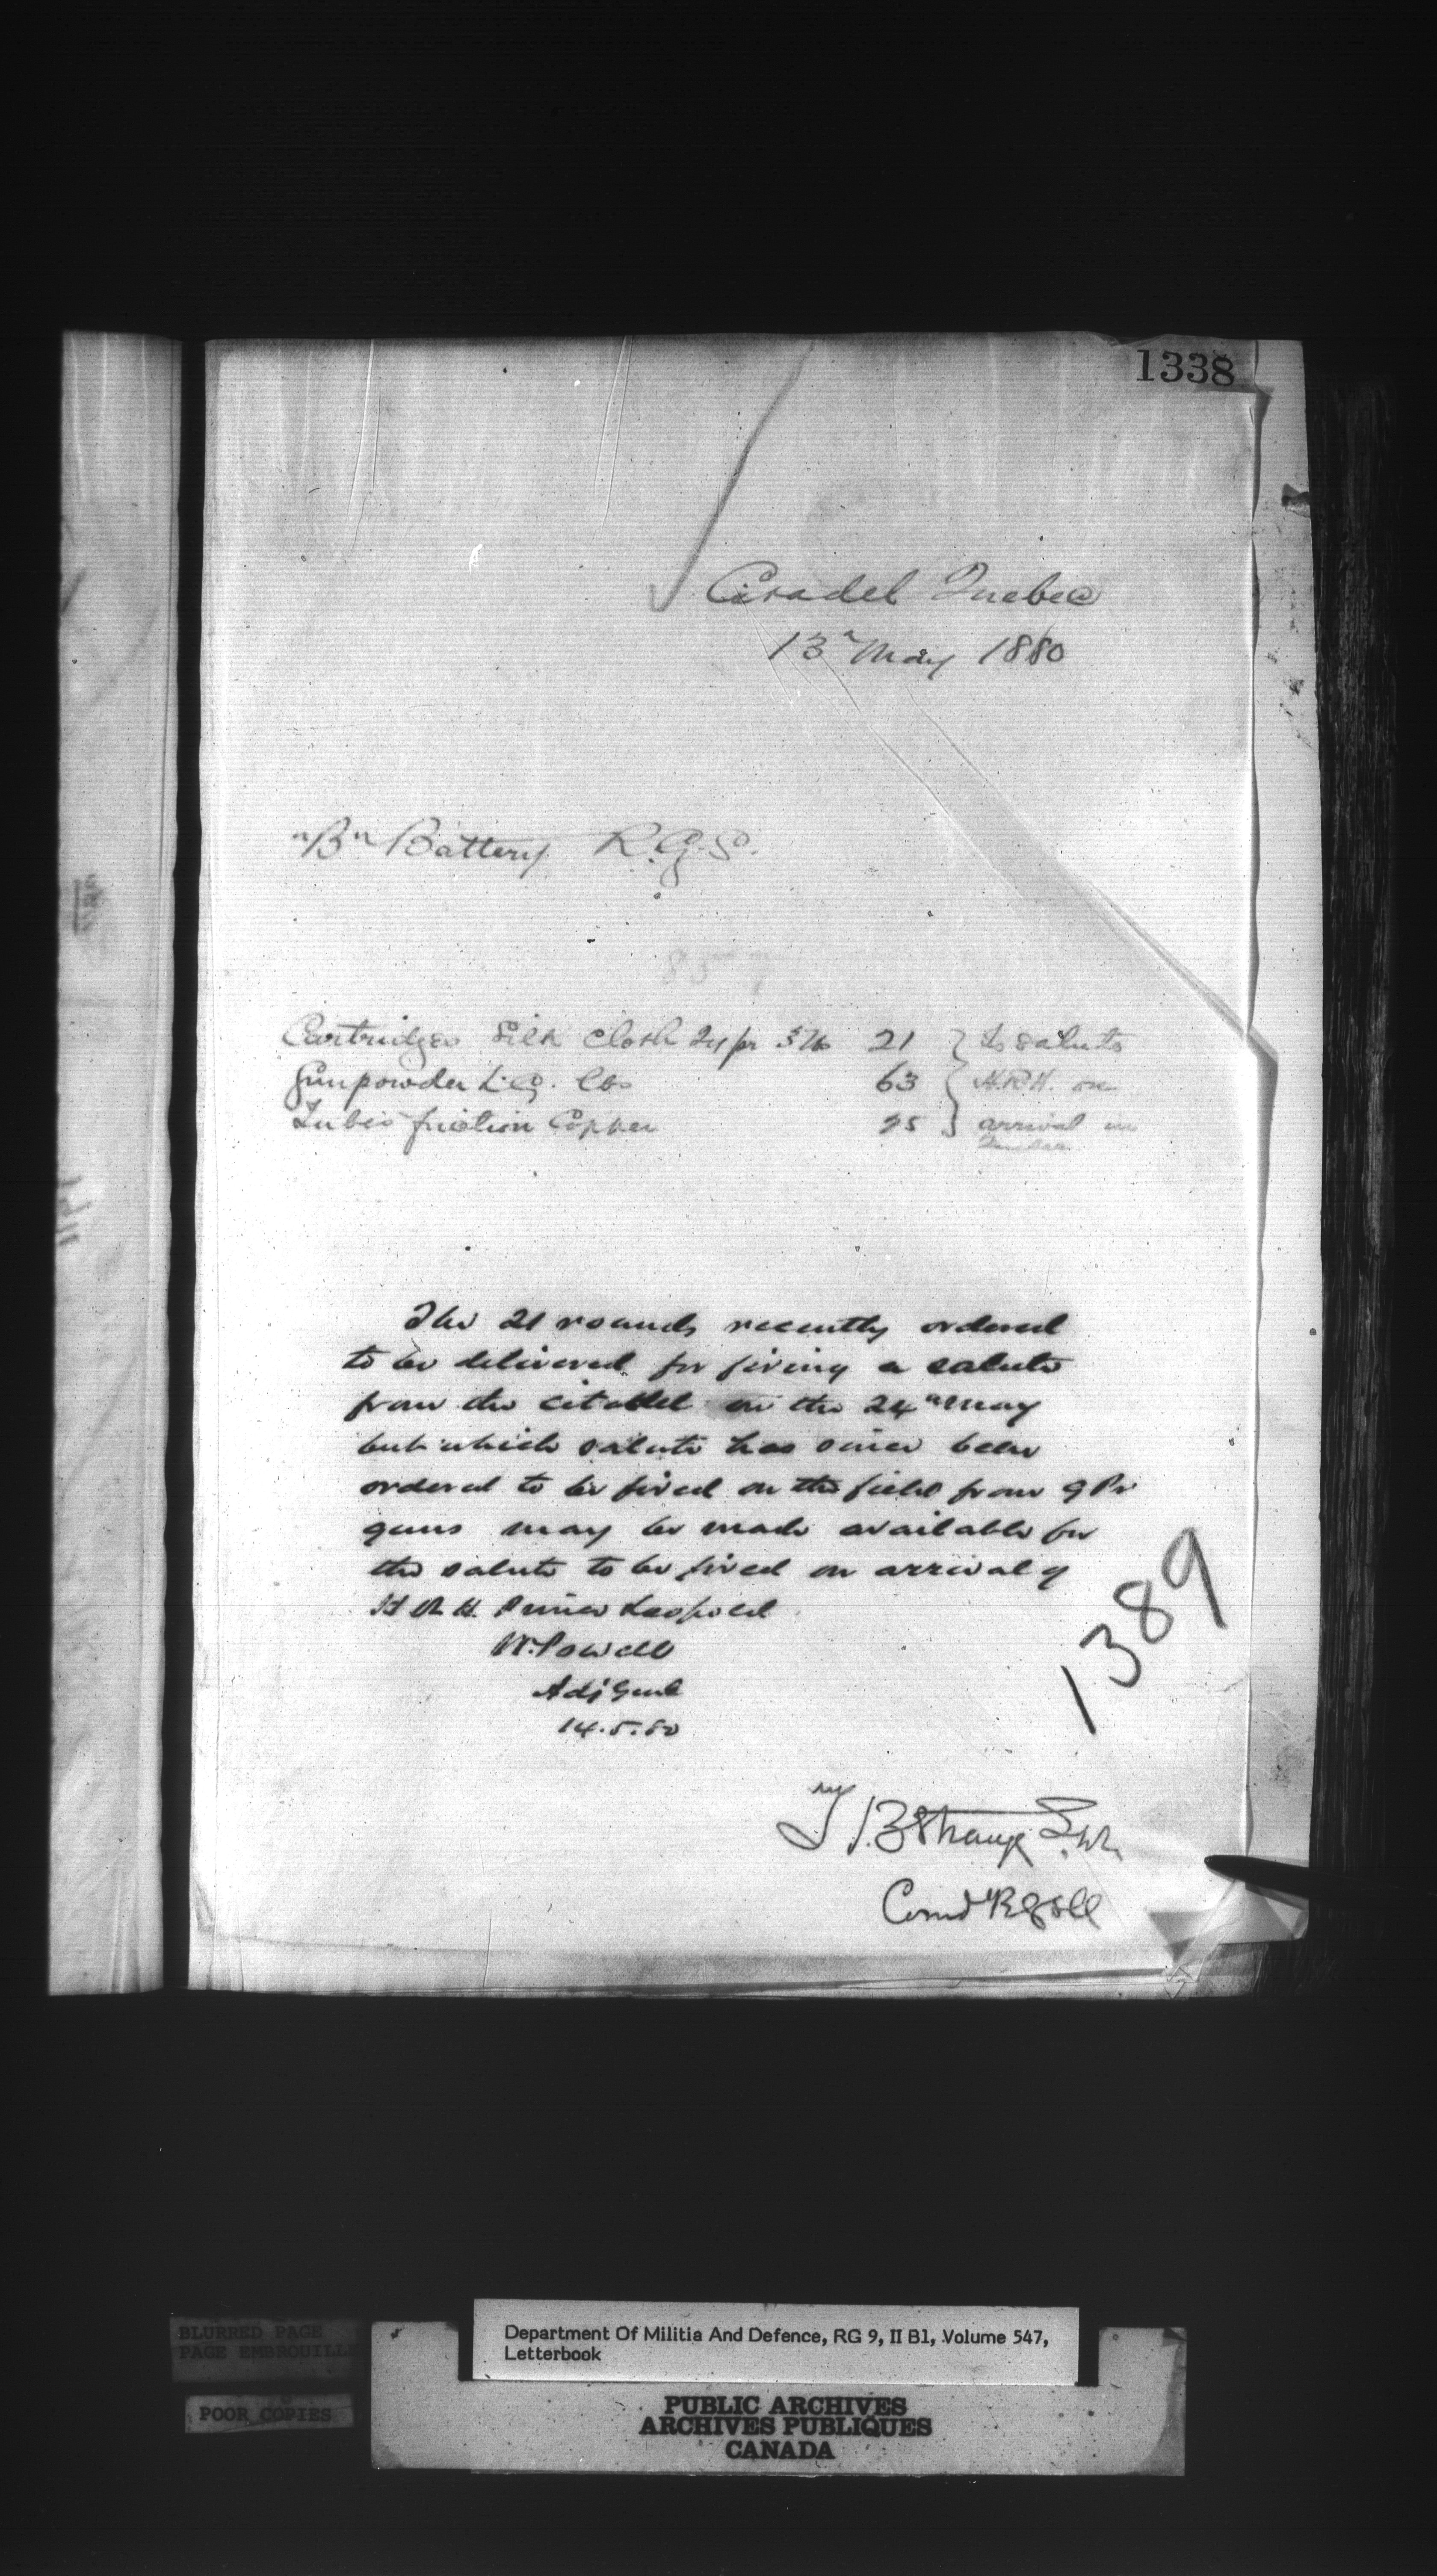 1338
Citadel Quebec
13th May 1880
"B" Battery R.G.S.
857
Cartridges Silk Cloth 24 pr 3 lb 21 } To salute
Gunpowder L.G. lbs 63 } H.R.H. on
Tubes friction Copper 25 } arrival in
Quebec
The 21 rounds recently ordered
to be delivered for firing a salute
from the citadel on the 24th May
but which salute has since been
ordered to be fired on the field from 9 Pr
guns may be made available for
the salute to be fired on arrival of
H R H. Prince Leopold
W. Powell
Adj Genl
14.5.80
1389
T B Strange
BLURRED PAGE
POOR COPIES
Department Of Militia And Defence, RG 9, II B1, Volume 547,
Letterbook
PUBLIC ARCHIVES
ARCHIVES PUBLIQUES
CANADA